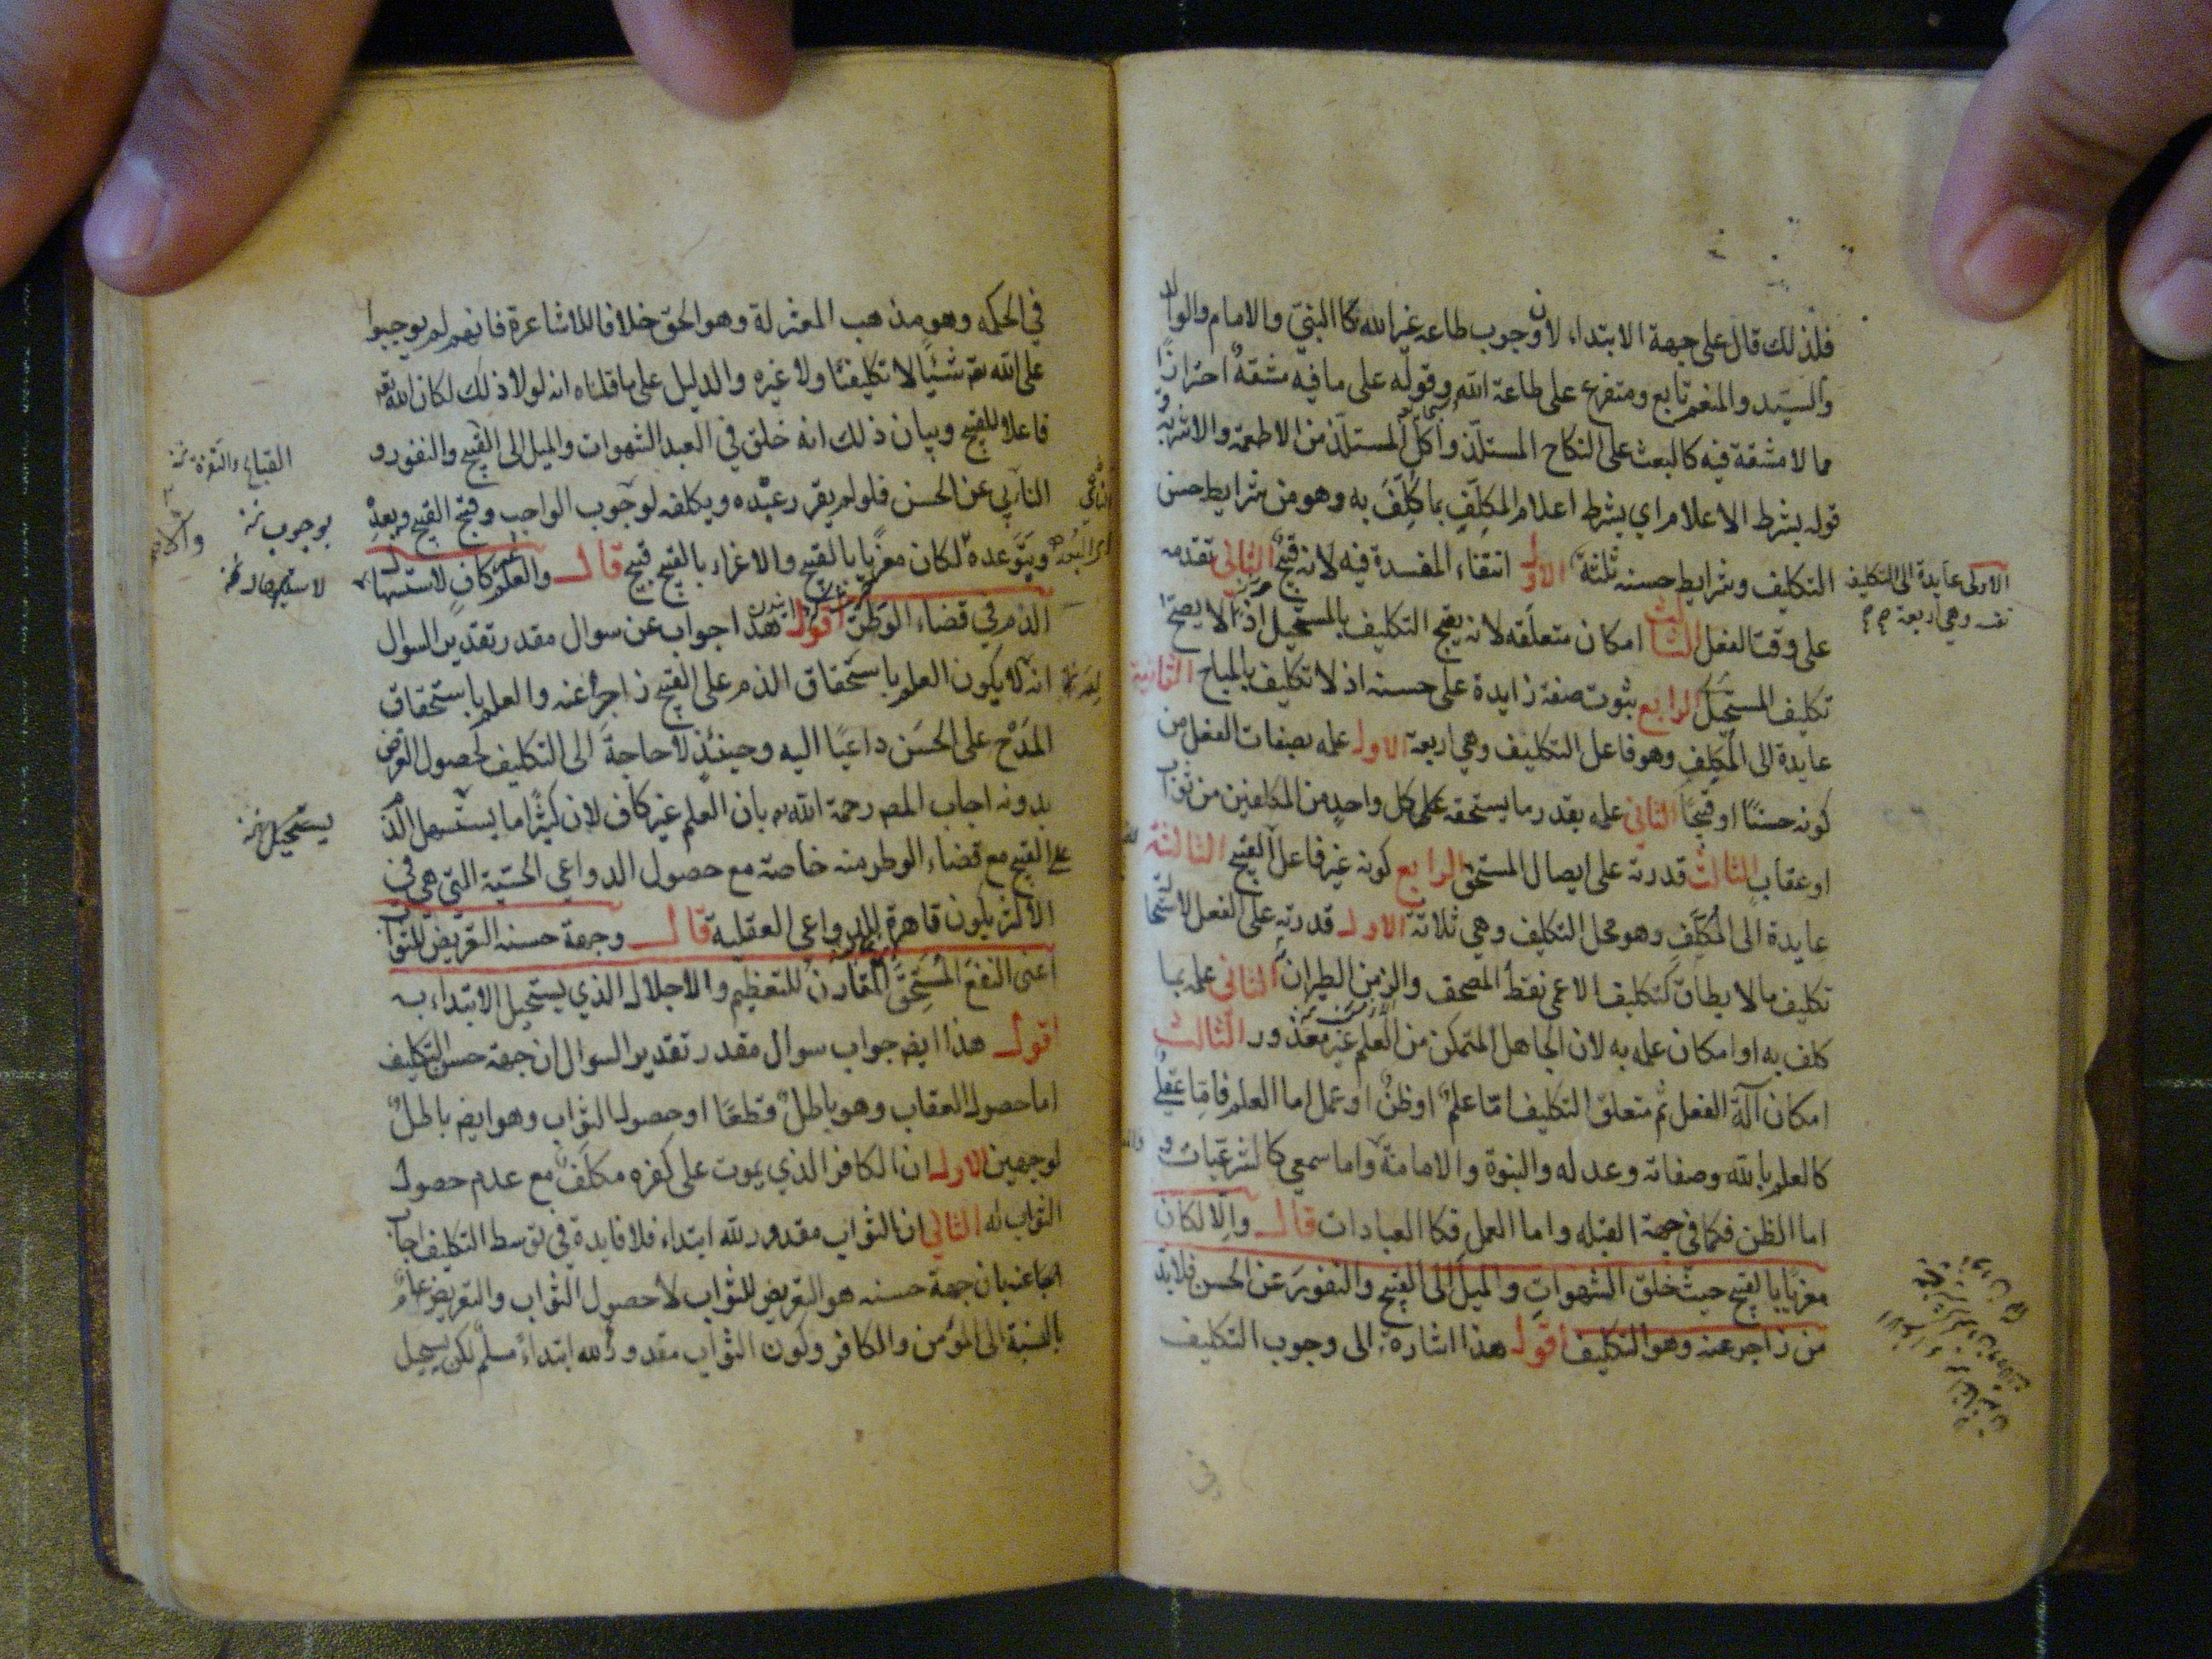 فلذلك قال على جهة الابتداء لان وجوب طاعه غير الله تعا كالنبي والامام والوالد
والسيد والمنعم تابع ومتفرع على طاعة الله وقوله على ما فيه مشقة احترازا
مما لا مشقة فيه كالبعث على النكاح المستلذ واكل المستلذ من الاطعمة والاشربه و
قوله بشرط الاعلام اي بشرط اعلام المكلف بما كلف به وهو من شرايط حسن
التكليف وشرايط حسنه ثلثة الاول انتفاء المفسدة فيه لانه قبيح الثاني تقدمه
على وقت الفعل الثالث امكان متعلقه لانه يقبح التكليف بالمستحيل اذ لا يصح
تكليف المستحيل الرابع ثبوت صفة زايدة على حسنه اذ لا تكليف بالمباح الثانية
عايدة الى المكلف وهو فاعل التكليف وهي اربعة الاول علمه بصفات الفعل من
كونه حسنا او قبيحا الثاني علمه بقدر ما يستحقه على كل واحد من المكلفين من ثواب
او عقاب الثالث قدرته على ايصال المستحق الرابع كونه غير فاعل القبيح الثالثة
عايدة الى المكلف وهو محل التكليف وهي ثلاثة الاول قدرته على الفعل لاستحا
تكليف ما لا يطاق كتكليف الاعمى نقط المصحف والزمن الطيران الثاني علمه بما
كلف به او امكان علمه به لان الجاهل المتمكن من العلم غير معذور الثالث
امكان آلة الفعل ثم متعلق التكليف اما علم او ظن او عمل اما العلم فاما عقلي
كالعلم بالله وصفاته وعدله والنبوة والامامة واما سمعي كالشرعيات و
اما الظن فكما في جهة القبله واما العمل فكالعبادات قال والا لكان
مغريا بالقبيح حيث خلق الشهوات والميل الى القبيح والنفور عن الحسن فلابد
من زاجر عنه وهو التكليف اقول هذا اشارة الى وجوب التكليف
الاولى عايدة الى التكليف
نفسه وهي اربعة
في الحكمه وهو مذهب المعتزلة وهو الحق خلافا للاشاعرة فانهم لم يوجبوا
على الله تعم شيئا لا تكليفا ولا غيره والدليل على ما قلناه انه لولا ذلك لكان الله تعم
فاعلا للقبيح وبيان ذلك انه خلق في العبد الشهوات والميل الى القبيح والنفور و
التابي عن الحسن فلو لم يقرر عبده ويكلفه لوجوب الواجب وقبح القبيح ويعده
ويتوعده لكان مغريا بالقبيح والاغراء بالقبيح قبيح قال والعلم غير كاف لاستسهال
الذم في قضاء الوطر اقول هذا جواب عن سوال مقدر تقدير السوال
انه لا يكون العلم باستحقاق الذم على القبيح زاجرا عنه والعلم باستحقاق
المدح على الحسن داعيا اليه وحينئذ لا حاجة الى التكليف لحصول الغرض
بدونه اجاب المصر رحمة الله بان العلم غير كاف لان كثيرا ما يستسهل الذم
على القبيح مع قضاء الوطر منه خاصة مع حصول الدواعي الحسية التي هي في
الاكثر يكون قاهرة للدواعي العقلية قال وجهة حسنه التعريض للثواب
اعنى النفع المستحق المقارن للتعظيم والاجلال الذي يستحيل الابتداء به
اقول هذا ايضم جواب سوال مقدر تقدير السوال ان جهة حسن التكليف
اما حصول العقاب وهو باطل قطعا او حصول الثواب وهو ايضم باطل
لوجهين الاول ان الكافر الذي يموت على كفره مكلف مع عدم حصول
الثواب له الثاني ان الثواب مقدور لله ابتداء فلا فايدة في توسط التكليف اجاب
عنه بان جهة حسنه هو التعريض للثواب لا حصول الثواب والتعريض عام
بالنسبة الى المؤمن والكافر وكون الثواب مقدورا لله ابتداء مسلم لكن يستحيل
القبايح والنفرة
بوجوب
يستحيل